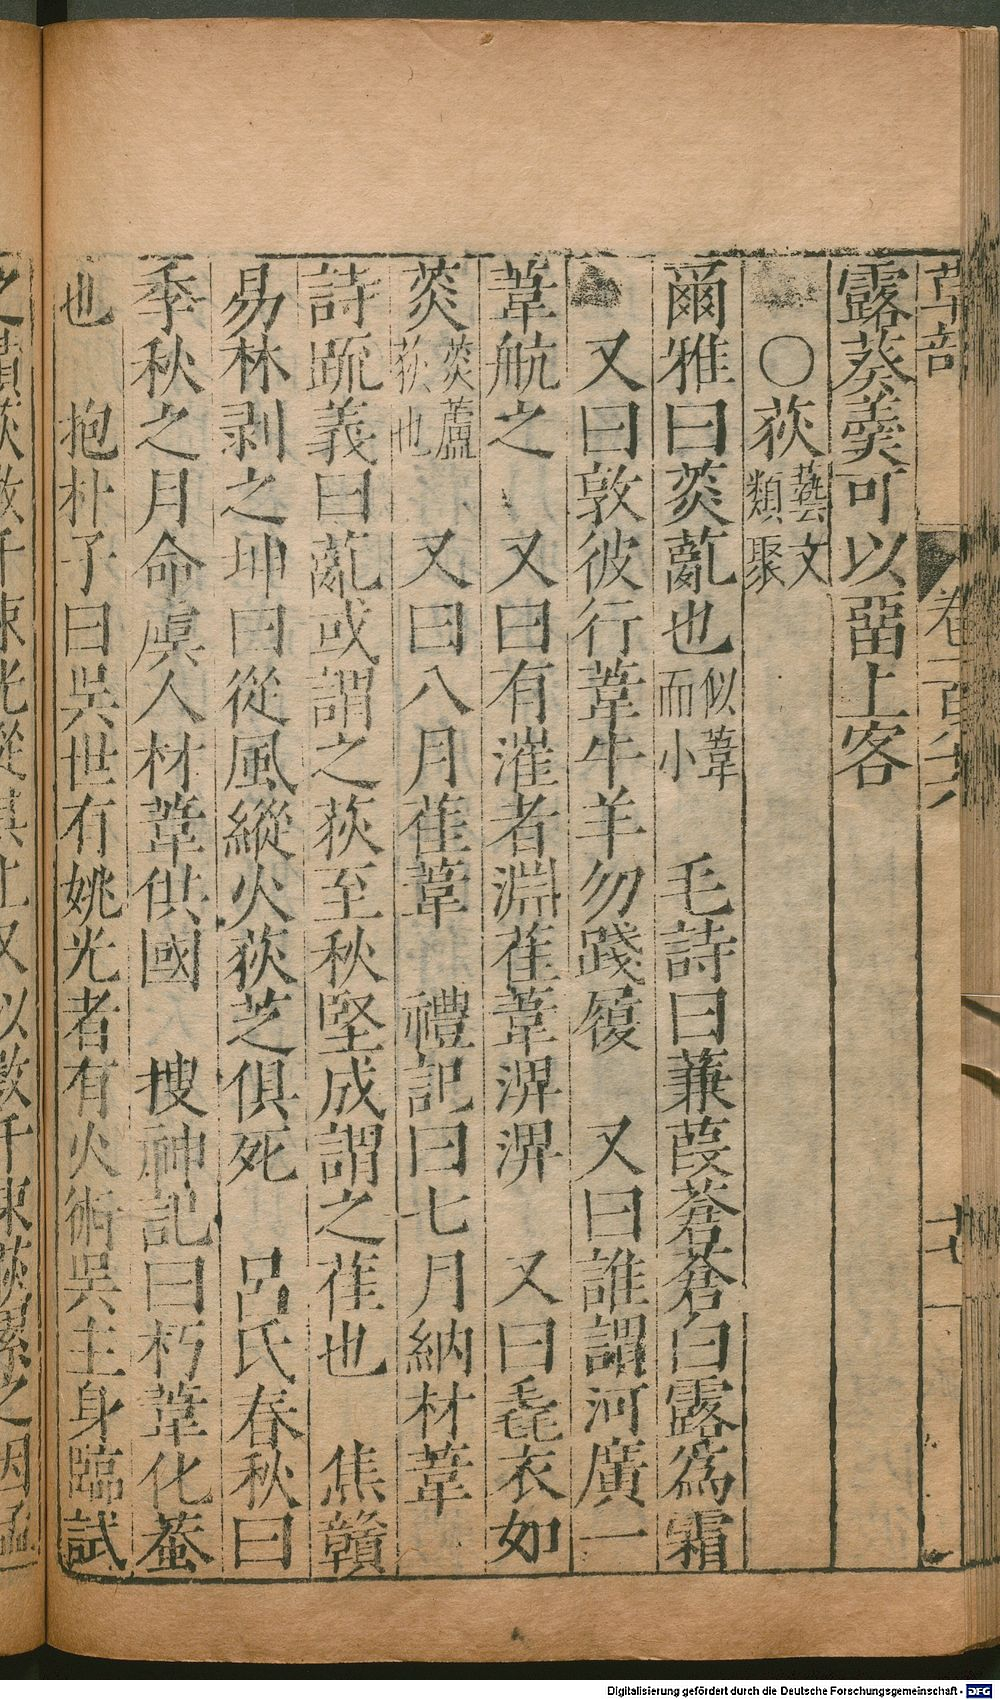 草部 卷一百八 十七
露葵羹可以留上客
〇荻藝文類聚
爾雅曰菼薍也似葦而小 毛詩曰蒹葭蒼蒼白露為霜
又曰敦彼行葦牛羊勿踐履 又曰誰謂河廣一
葦航之 又曰有漼者淵萑葦淠淠 又曰毳衣如
菼菼蘆荻也 又曰八月萑葦 禮記曰七月納材葦
詩䟽義曰薍或謂之荻至秋堅成謂之萑也 焦贛
易林剥之坤曰從風縱火荻芝俱死 呂氏春秋曰
季秋之月命虞人材葦供國 搜神記曰朽葦化蛬
也 抱朴子曰吳世有姚光者有火術吳主身臨試
之積荻數千束光從其上又以數千束荻累之因猛
Digitalisierung gefördert durch die Deutsche Forschungsgemeinschaft - DFG